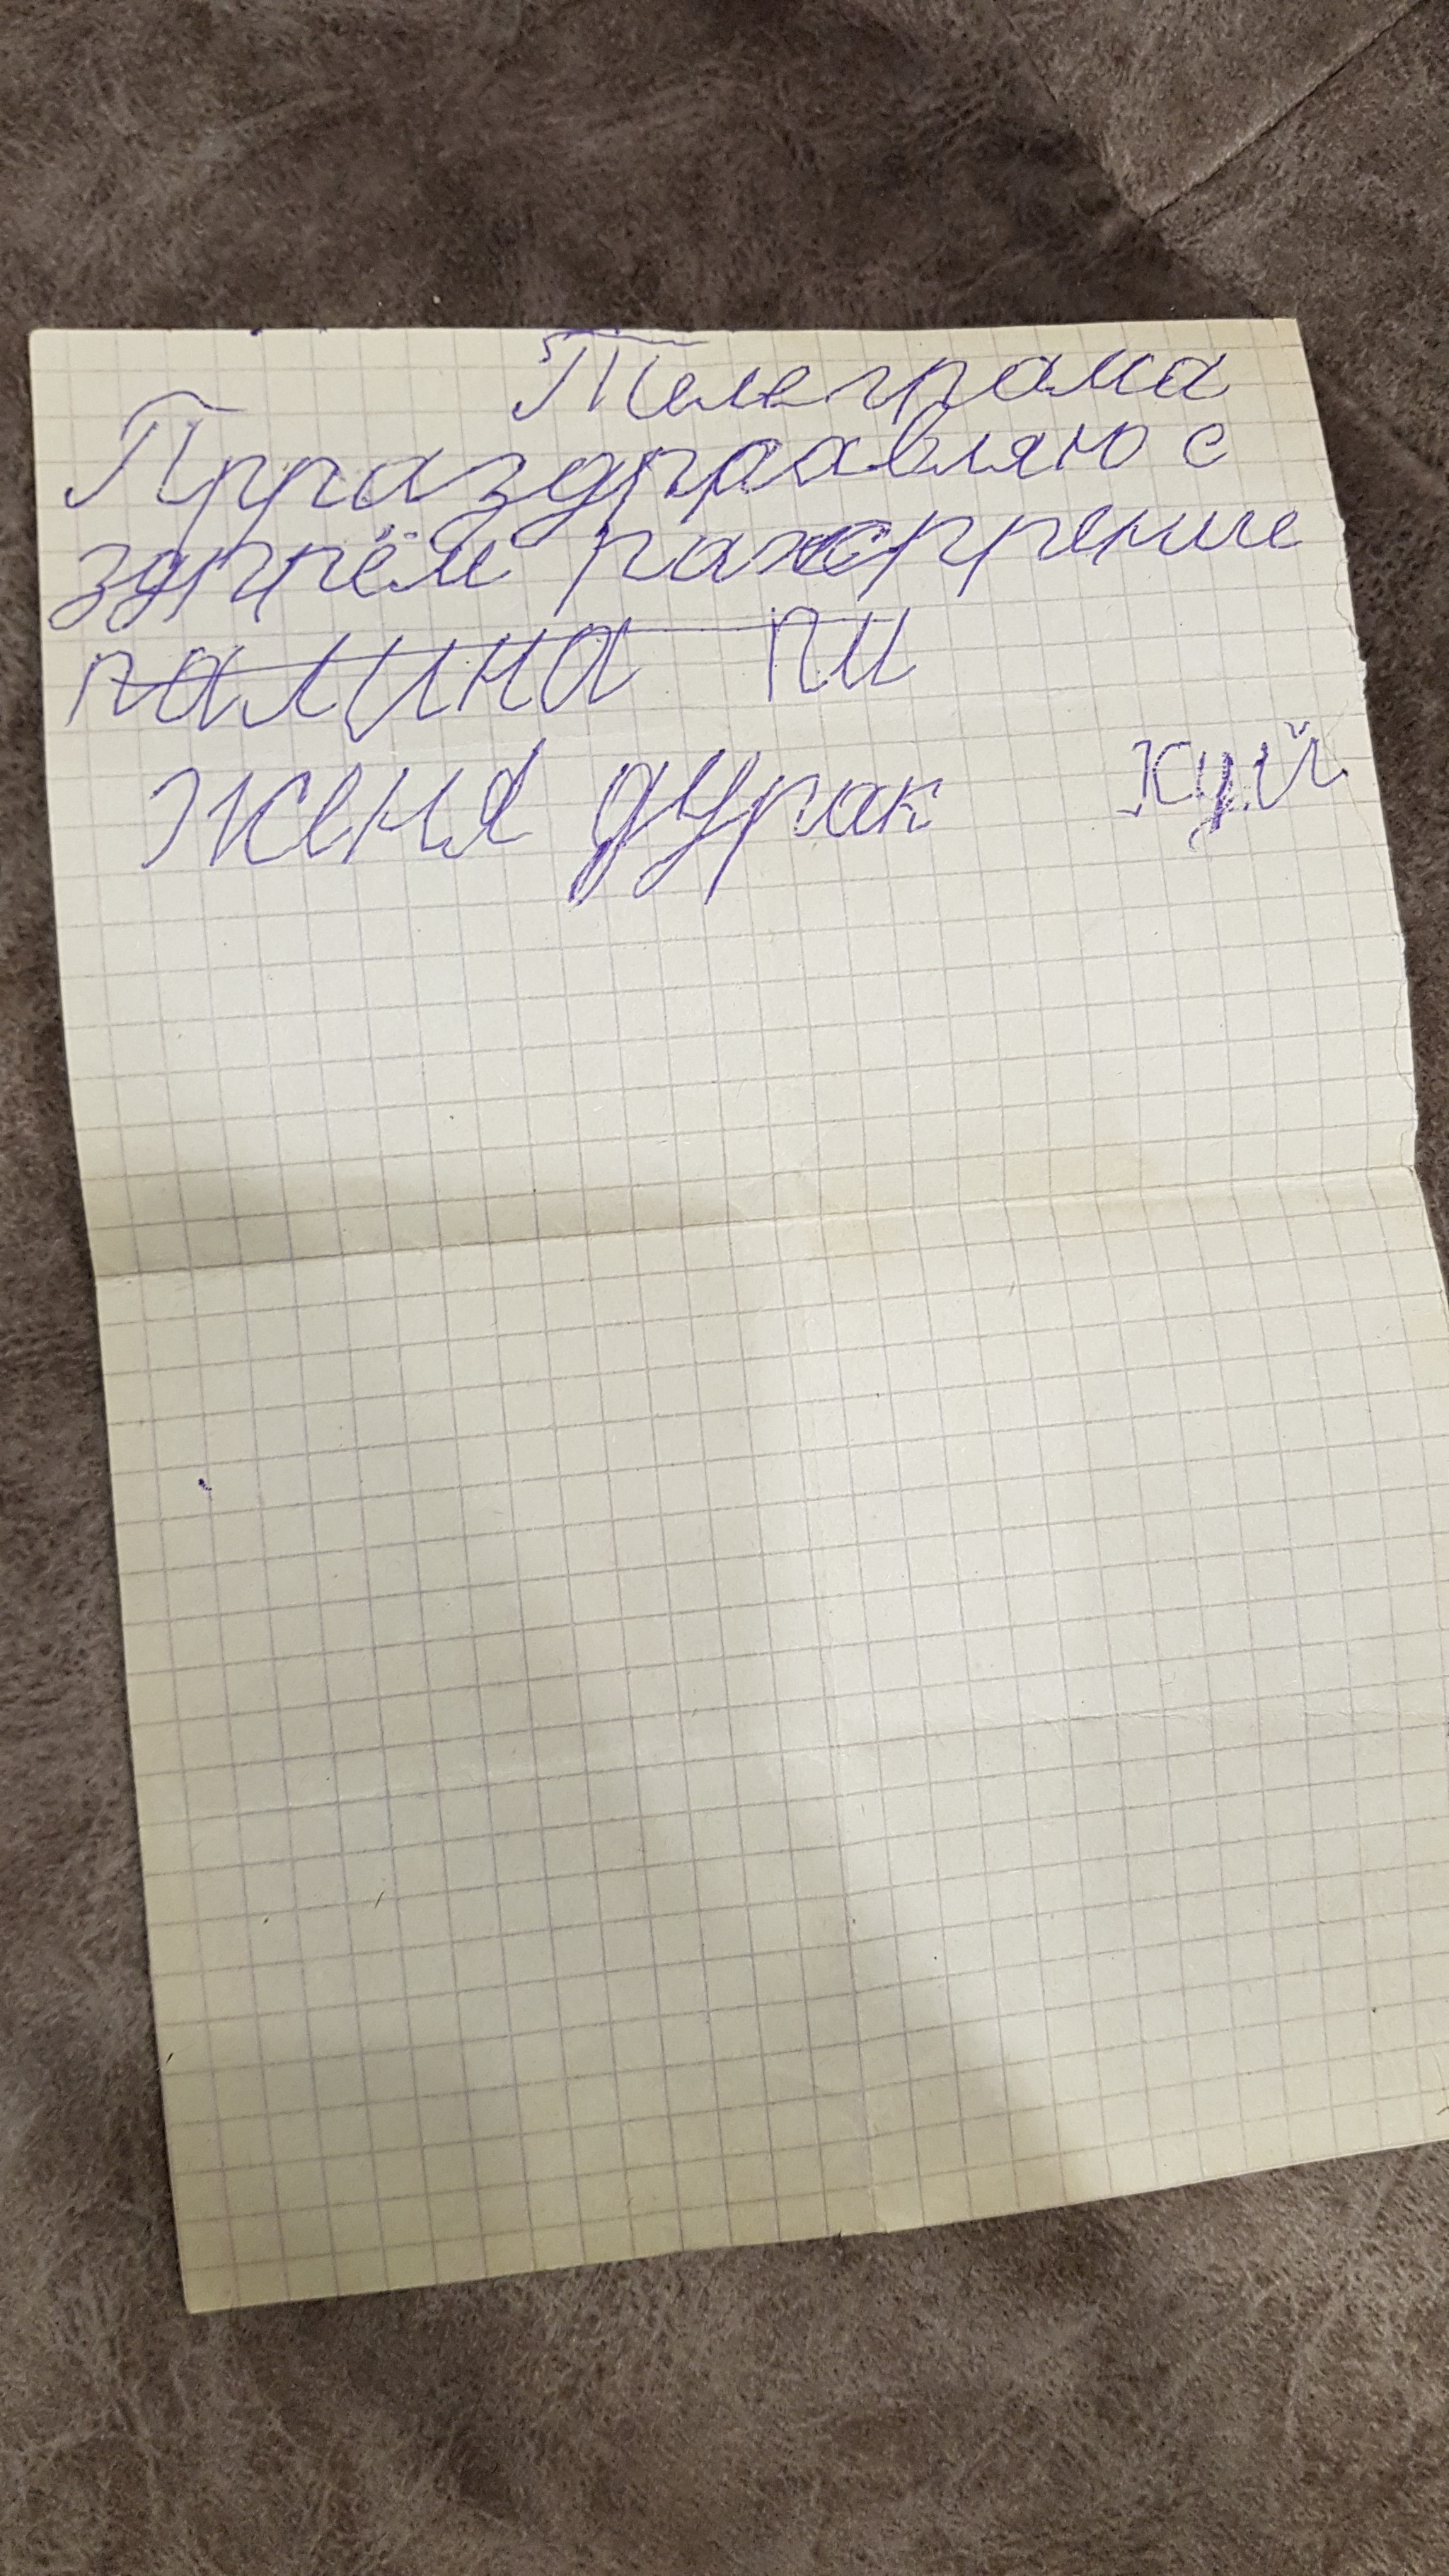 Телеграма
Прраздрравляю с
здррём ражррение
палина пи
женя дурак куй